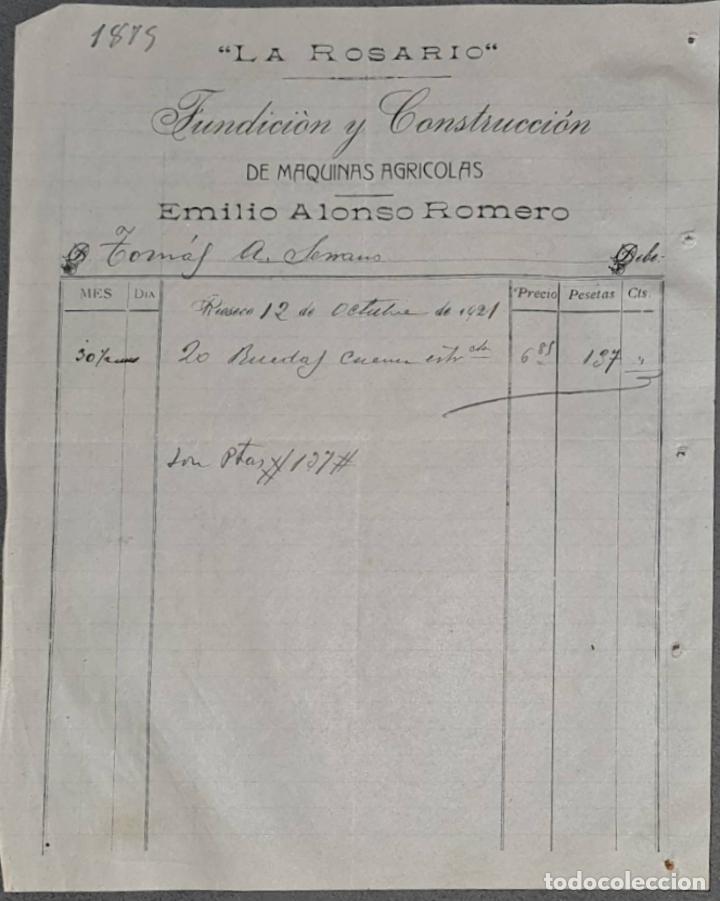 1879
"LA ROSARIO"
Fundiciòn y Construcciòn
DE MAQUINAS AGRICOLAS
Emilio Alonso Romero
D. Tomás A. Serrano Debe:
MES DIA Precio Pesetas Cts.
Rioseco 12 de Octubre de 1921
20 Ruedas 6 85 137 "
Son Ptas # 137 #
todocoleccion
todocoleccion.net